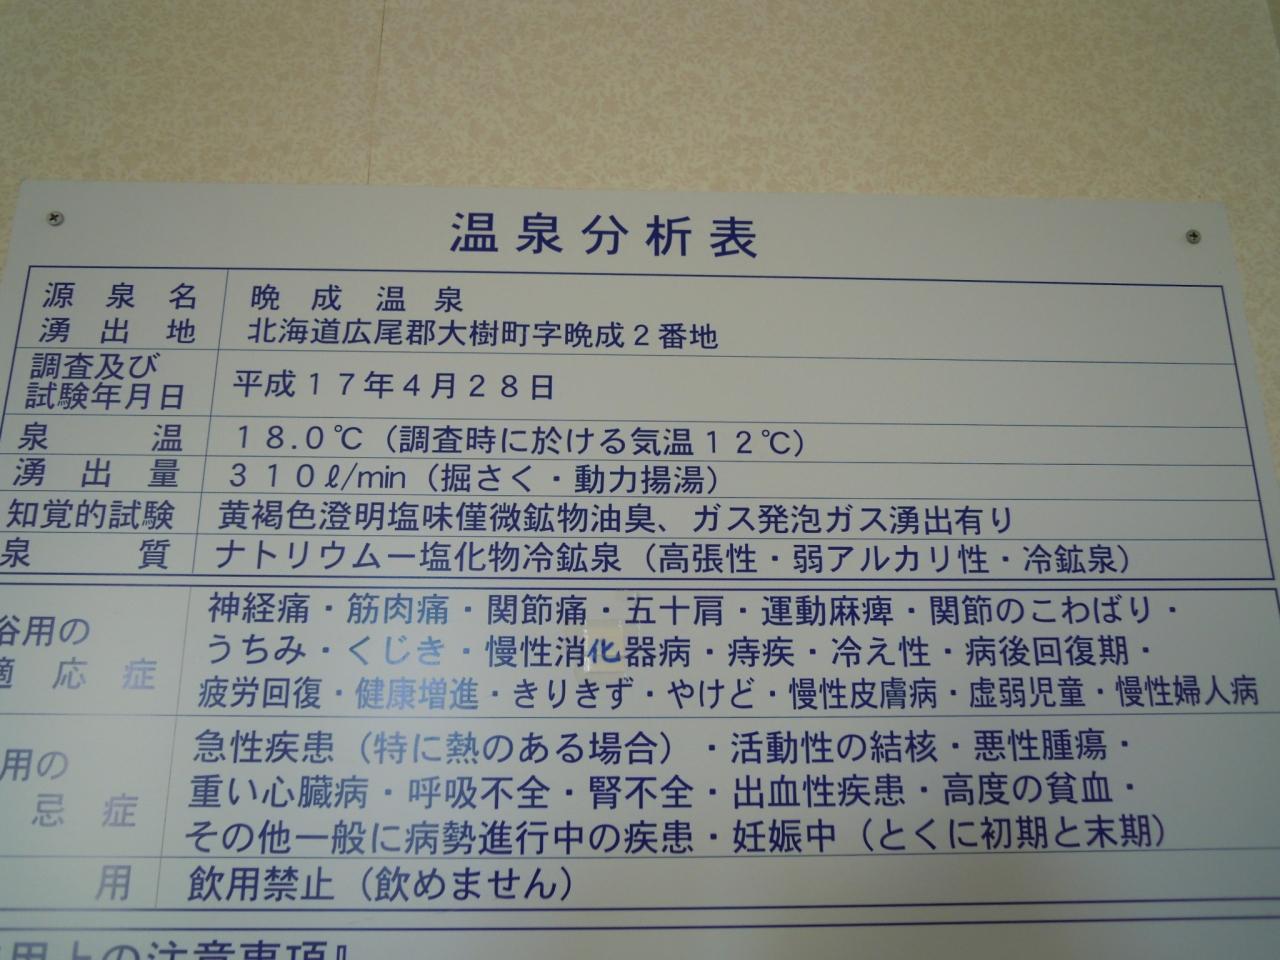 温泉分析表
源泉名 晩成温泉
湧出地 北海道広尾郡大樹町字晩成２番地
調査及び
試験年月日 平成１７年４月２８日
泉温 １８.０℃（調査時に於ける気温１２℃）
湧出量 ３１０ℓ/min（掘さく・動力揚湯）
知覚的試験 黄褐色澄明塩味僅微鉱物油臭、ガス発泡ガス湧出有り
泉質 ナトリウムー塩化物冷鉱泉（高張性・弱アルカリ性・冷鉱泉）
浴用の 神経痛・筋肉痛・関節痛・五十肩・運動麻痺・関節のこわばり・
適応症 うちみ・くじき・慢性消化器病・痔疾・冷え性・病後回復期・
疲労回復・健康増進・きりきず・やけど・慢性皮膚病・虚弱児童・慢性婦人病
用の 急性疾患（特に熱のある場合）・活動性の結核・悪性腫瘍・
忌症 重い心臓病・呼吸不全・腎不全・出血性疾患・高度の貧血・
その他一般に病勢進行中の疾患・妊娠中（とくに初期と末期）
用 飲用禁止（飲めません）
用上の注意事項』